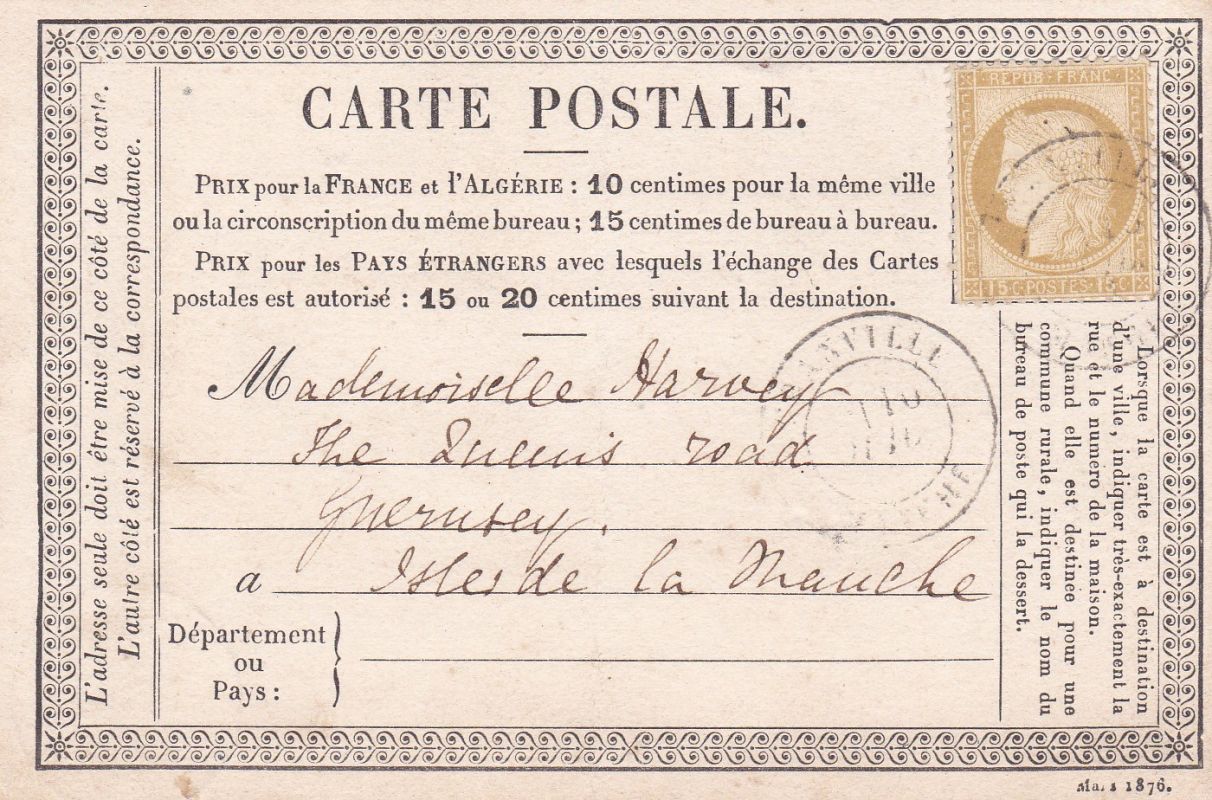 CARTE POSTALE.
PRIX pour la FRANCE et l'ALGÉRIE : 10 centimes pour la même ville
ou la circonscription du même bureau ; 15 centimes de bureau à bureau.
PRIX pour les PAYS ÉTRANGERS avec lesquels l'échange des Cartes
postales est autorisé : 15 ou 20 centimes suivant la destination.
REPUB · FRANC ·
15 C · POSTES · 15 C
Mademoiselle Harvey
The Queens road
Guernsey.
a Isles de la Manche
Département
ou
Pays :
L'adresse seule doit être mise de ce côté de la carte.
L'autre côté est réservé à la correspondance.
Lorsque la carte est à destination
d'une ville, indiquer très-exactement la
rue et le numéro de la maison.
Quand elle est destinée pour une
commune rurale, indiquer le nom du
bureau de poste qui la dessert.
Mars 1876.